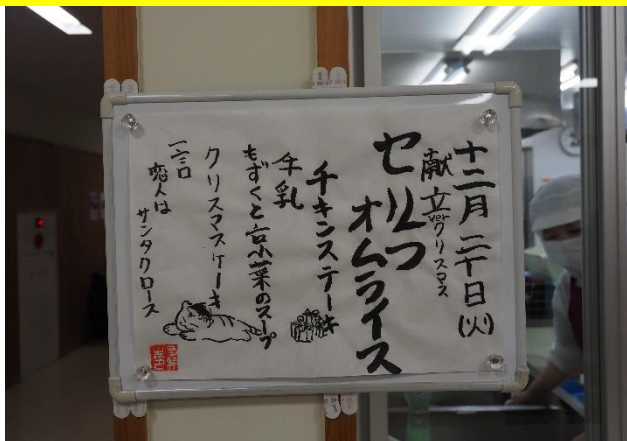 十二月二十日(火)
献立verクリスマス
セルフ
オムライス
チキンステーキ
牛乳
もずくと白菜のスープ
クリスマスケーキ
一言
恋人は
サンタクロース